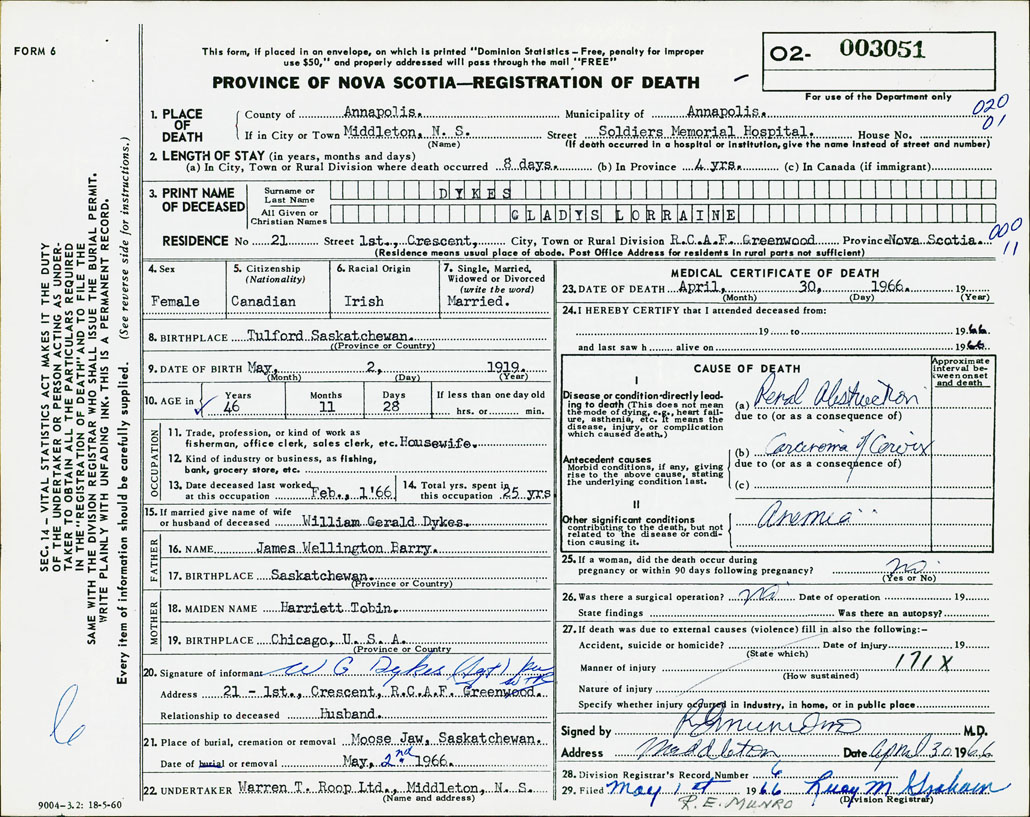 FORM 6
This form, if placed in an envelope, on which is printed "Dominion Statistics – Free, penalty for improper
use $50," and properly addressed will pass through the mail "FREE"
PROVINCE OF NOVA SCOTIA—REGISTRATION OF DEATH
O2- 003051
For use of the Department only
020
01
1. PLACE OF DEATH
County of Annapolis. Municipality of Annapolis.
If in City or Town Middleton, N. S. Street Soldiers Memorial Hospital. House No.
(Name) (If death occurred in a hospital or institution, give the name instead of street and number)
2. LENGTH OF STAY (in years, months and days)
(a) In City, Town or Rural Division where death occurred 8 days. (b) In Province 4 yrs. (c) In Canada (if immigrant)
3. PRINT NAME OF DECEASED
Surname or Last Name DYKES
All Given or Christian Names GLADYS LORRAINE
000
11
RESIDENCE No 21 Street 1st., Crescent, City, Town or Rural Division R.C.A.F. Greenwood Province Nova Scotia.
(Residence means usual place of abode. Post Office Address for residents in rural parts not sufficient)
4. Sex
Female
5. Citizenship (Nationality)
Canadian
6. Racial Origin
Irish
7. Single, Married, Widowed or Divorced (write the word)
Married.
8. BIRTHPLACE Tulford Saskatchewan.
(Province or Country)
9. DATE OF BIRTH May, 2, 1919.
(Month) (Day) (Year)
10. AGE in Years Months Days If less than one day old
46 11 28 hrs. or min.
OCCUPATION
11. Trade, profession, or kind of work as
fisherman, office clerk, sales clerk, etc. Housewife.
12. Kind of industry or business, as fishing,
bank, grocery store, etc.
13. Date deceased last worked at this occupation Feb., 1'66
14. Total yrs. spent in this occupation 25 yrs
15. If married give name of wife
or husband of deceased William Gerald Dykes.
FATHER
16. NAME James Wellington Barry.
17. BIRTHPLACE Saskatchewan.
(Province or Country)
MOTHER
18. MAIDEN NAME Harriett Tobin.
19. BIRTHPLACE Chicago, U. S. A.
(Province or Country)
20. Signature of informant W G Dykes (Sgt)
Address 21 - 1st., Crescent, R.C.A.F. Greenwood.
Relationship to deceased Husband.
21. Place of burial, cremation or removal Moose Jaw, Saskatchewan.
Date of burial or removal May, 2nd 1966.
22. UNDERTAKER Warren T. Roop Ltd., Middleton, N. S.
(Name and address)
MEDICAL CERTIFICATE OF DEATH
23. DATE OF DEATH April, 30, 1966. 19
(Month) (Day) (Year)
24. I HEREBY CERTIFY that I attended deceased from:
19 to 1966.
and last saw h alive on 1966
CAUSE OF DEATH
Approximate interval between onset and death
I
Disease or condition directly leading to death (This does not mean the mode of dying, e.g., heart failure, asthenia, etc. It means the disease, injury, or complication which caused death.)
(a) Renal Obstruction
due to (or as a consequence of)
Antecedent causes
Morbid conditions, if any, giving rise to the above cause, stating the underlying condition last.
(b) Carcinoma of Cervix
due to (or as a consequence of)
(c)
II
Other significant conditions
contributing to the death, but not related to the disease or condition causing it.
Anemia
25. If a woman, did the death occur during
pregnancy or within 90 days following pregnancy? No
(Yes or No)
26. Was there a surgical operation? No Date of operation 19
State findings Was there an autopsy?
27. If death was due to external causes (violence) fill in also the following:–
Accident, suicide or homicide? Date of injury 19
(State which)
Manner of injury 171X
(How sustained)
Nature of injury
Specify whether injury occurred in industry, in home, or in public place
Signed by M.D.
Address Middleton Date April 30 1966
28. Division Registrar's Record Number 6
29. Filed May 1st 1966 M Graham
(Division Registrar)
R. E. MUNRO
SEC. 14 – VITAL STATISTICS ACT MAKES IT THE DUTY
OF THE UNDERTAKER OR PERSON ACTING AS UNDER-
TAKER TO OBTAIN ALL THE PARTICULARS REQUIRED
IN THE "REGISTRATION OF DEATH" AND TO FILE THE
SAME WITH THE DIVISION REGISTRAR WHO SHALL ISSUE THE BURIAL PERMIT.
WRITE PLAINLY WITH UNFADING INK. THIS IS A PERMANENT RECORD.
Every item of information should be carefully supplied. (See reverse side for instructions.)
9004–3.2: 18-5-60